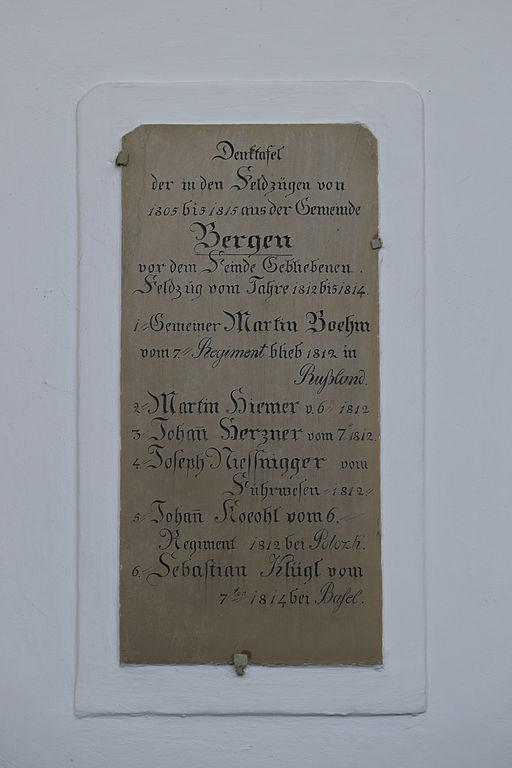 Denktafel
der in den Feldzügen von
1805 bis 1815 aus der Gemeinde
Bergen
vor dem Feinde Gebliebenen.
Feldzug vom Jahre 1812 bis 1814.
1. Gemeiner Martin Boehm
vom 7. Regiment blieb 1812 in
Rußland.
2. Martin Hiemer v. 6. 1812
3. Johan̄ Herzner vom 7. 1812.
4. Joseph Niessnigger vom
Fuhrwesen 1812
5. Johan̄ Koeohl vom 6.
Regiment 1812 bei Polozk.
6. Sebastian Klügl vom
7ten 1814 bei Basel.